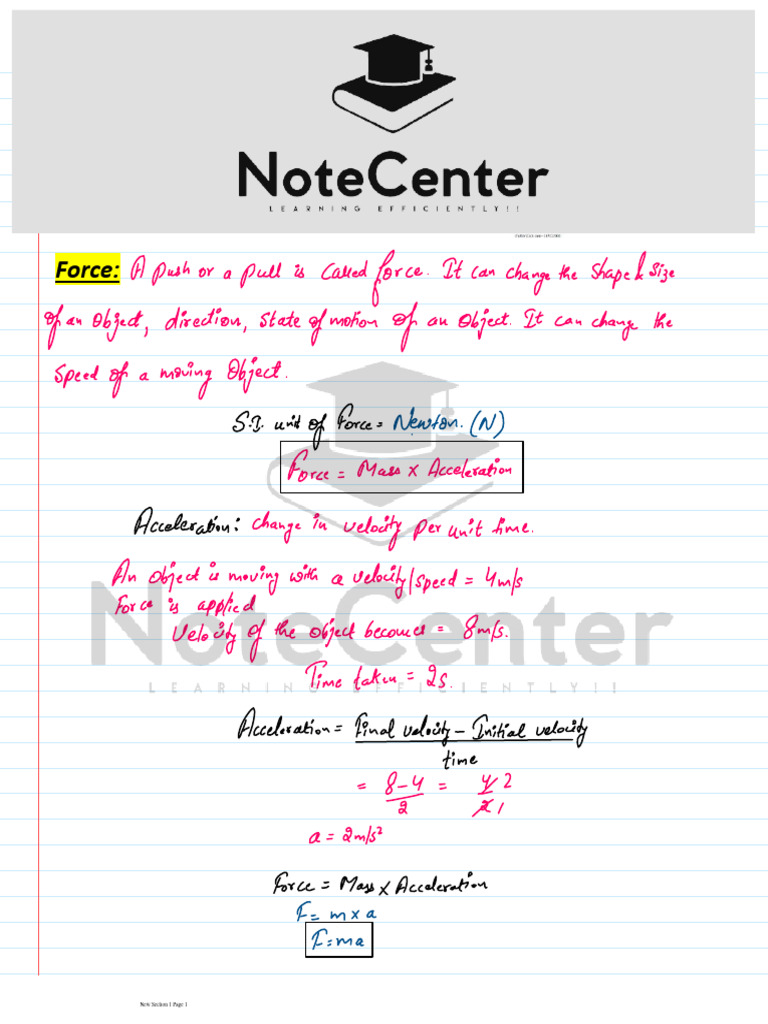 NoteCenter
LEARNING EFFICIENTLY!!
Force: A push or a pull is called force. It can change the shape & size
of an object, direction, state of motion of an object. It can change the
speed of a moving object.
S.I. unit of Force = Newton. (N)
Force = Mass x Acceleration
Acceleration: change in velocity per unit time.
An object is moving with a velocity/speed = 4m/s
Force is applied
Velocity of the object becomes = 8m/s.
NoteCenter
LEARNING EFFICIENTLY!!
Time taken = 2s.
Acceleration = Final velocity - Initial velocity
time
= 8-4 = 4 2
2 2 1
a = 2m/s²
Force = Mass x Acceleration
F = m x a
F=ma
New Section 1 Page 1